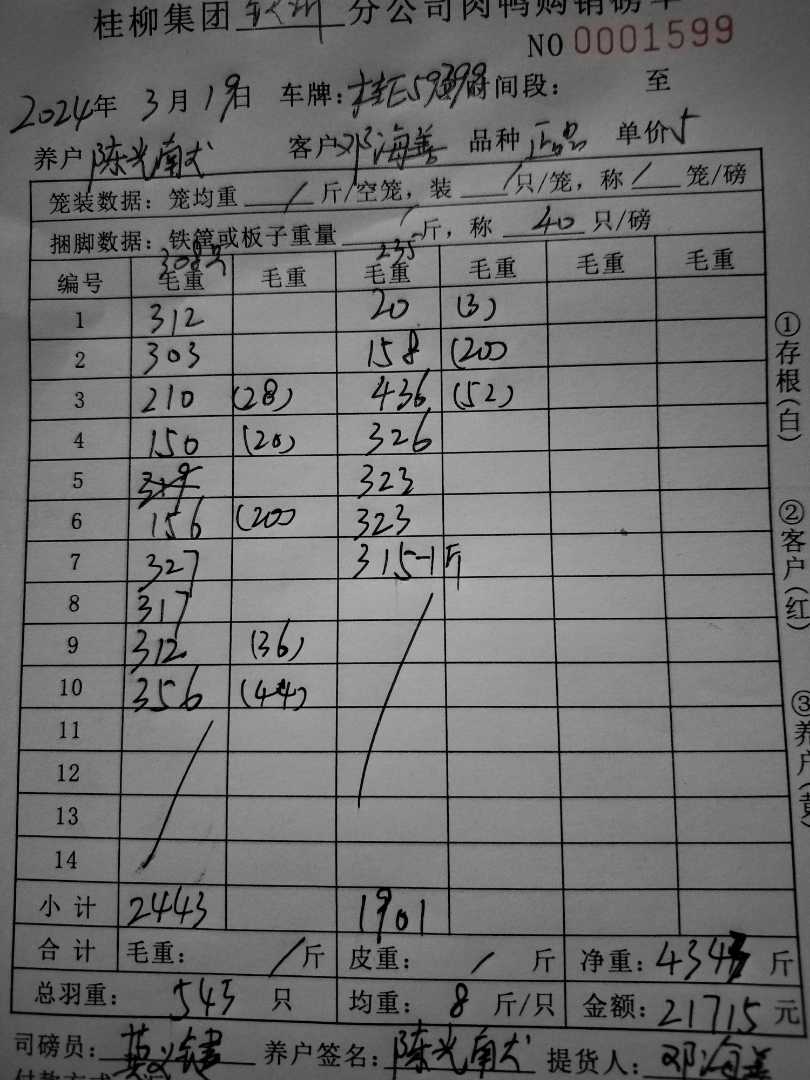 桂柳集团 钦州 分公司肉鸭购销磅单
NO 0001599
2024年 3月 19日 车牌:桂E59399 时间段: 至
养户 陈光南犬 客户 邓海善 品种 正品 单价 5
笼装数据: 笼均重 / 斤/空笼, 装 / 只/笼, 称 / 笼/磅
捆脚数据: 铁筐或板子重量 / 斤, 称 40 只/磅
308只 235
编号 毛重 毛重 毛重 毛重 毛重 毛重
1 312 20 (3)
2 303 158 (20)
3 210 (28) 436 (52)
4 150 (20) 326
5 323
6 156 (20) 323
7 327 315-1斤
8 317
9 312 (36)
10 356 (44)
11
12
13
14
小计 2443 1901
合计 毛重: / 斤 皮重: / 斤 净重: 4343 斤
总羽重: 543 只 均重: 8 斤/只 金额: 21715 元
司磅员: 养户签名: 陈光南犬 提货人: 邓海善
付款方式
①存根(白)
②客户(红)
③养户(黄)